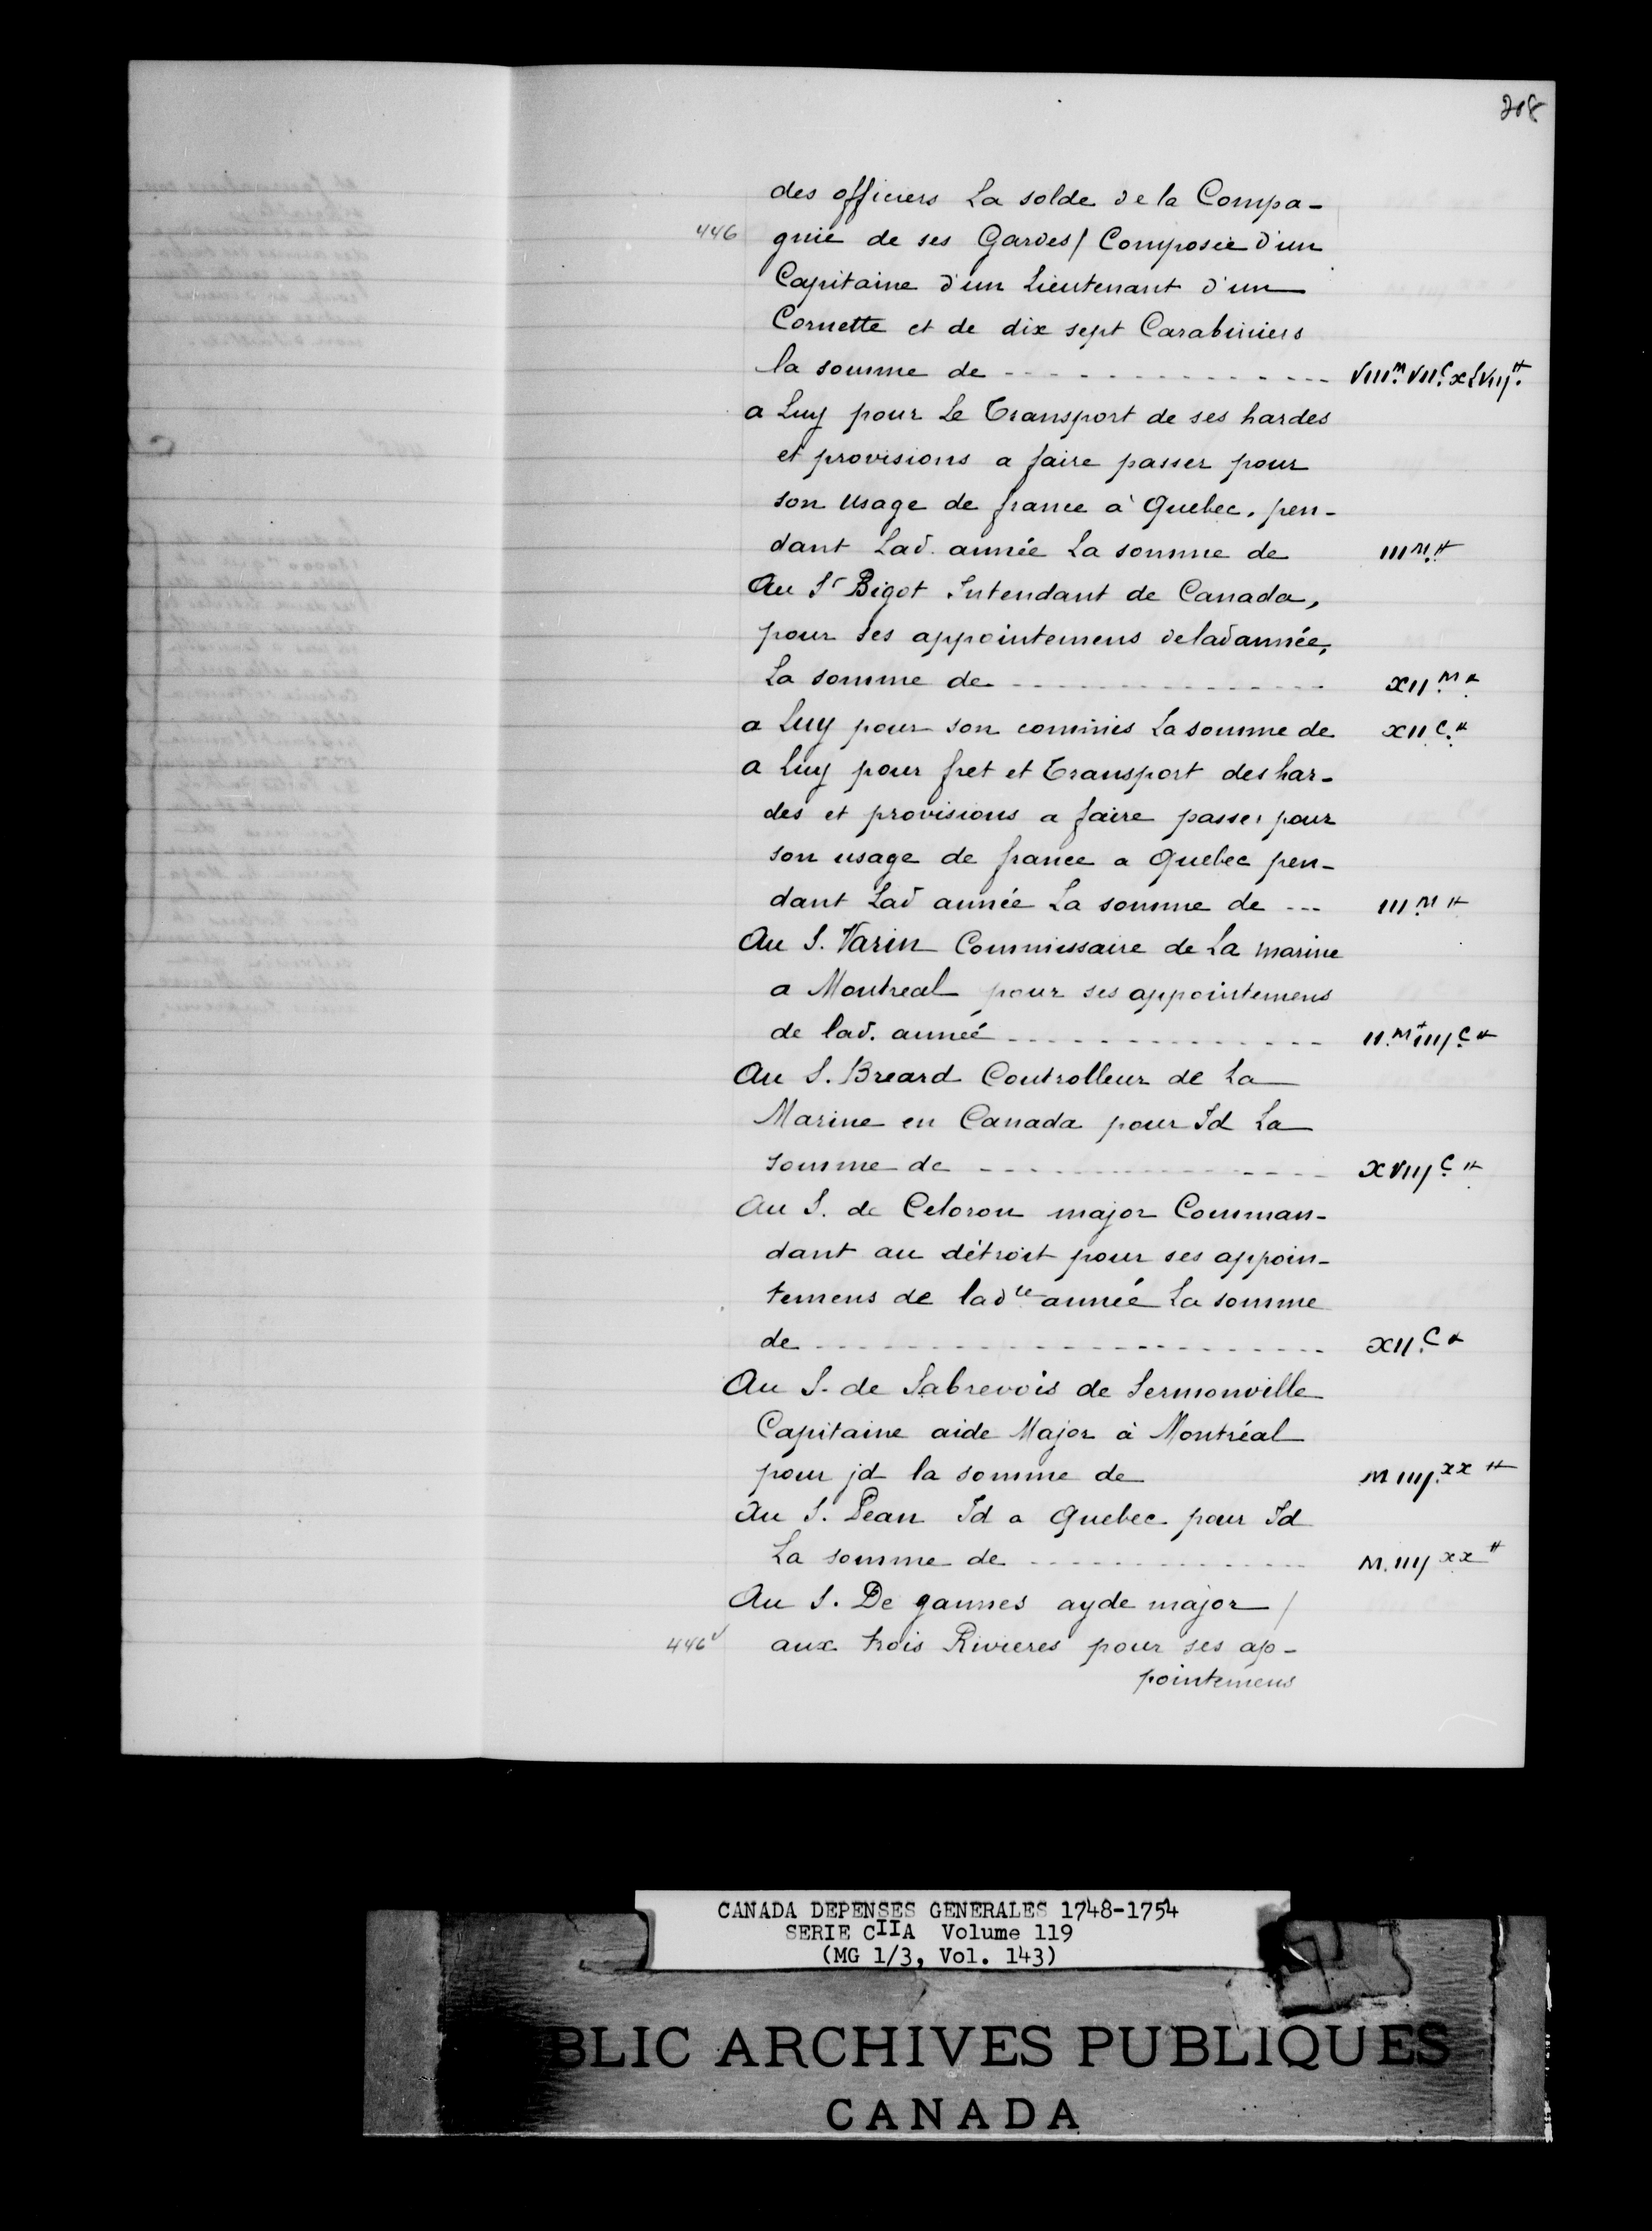 208
des officiers La solde de la Compa-
446 gnie de ses Gardes / Composée d'un
Capitaine d'un Lieutenant d'un
Cornette et de dix sept Carabiniers
la somme de - - - - - - - - - - VIIIᵐ. VIIᶜ xLVIIJ ᴴ.
a Luy pour Le Transport de ses hardes
et provisions a faire passer pour
son usage de france à Quebec, pen-
dant Lad. année La somme de IIIᴹ.ᴴ
Au Sʳ Bigot Intendant de Canada,
pour ses appointemens de lad année,
La somme de - - - - - - - - - - XIIᴹ.ᴴ
a Luy pour son commis La somme de XII C.ᴴ
a Luy pour fret et Transport des har-
des et provisions a faire passer pour
son usage de france a Quebec pen-
dant Lad année La somme de --- IIIᴹ ᴴ
Au S. Varin Commissaire de La marine
a Montreal pour ses appointemens
de lad. année - - - - - - - - - - II.ᴹ IIIJ C ᴴ
Au S. Breard Controlleur de La
Marine en Canada pour Id La
somme de - - - - - - - - - - XVIIJ C ᴴ
Au S. de Celoron major Comman-
dant au détroit pour ses appoin-
temens de ladᵗᵉ année La somme
de - - - - - - - - - - XII.C ᴴ
Au S. de Sabrevois de Sermonville
Capitaine aide Major à Montréal
pour jd la somme de M IIIJ.ˣˣ ᴴ
Au S. Pean Id a Quebec pour Id
La somme de - - - - - - - - - - M. IIIJ ˣˣ ᴴ
Au S. De gannes ayde major /
446ᵛ aux trois Rivieres pour ses ap-
pointemens
CANADA DEPENSES GENERALES 1748-1754
SERIE CIIA Volume 119
(MG 1/3, Vol. 143)
BLIC ARCHIVES PUBLIQUES
CANADA